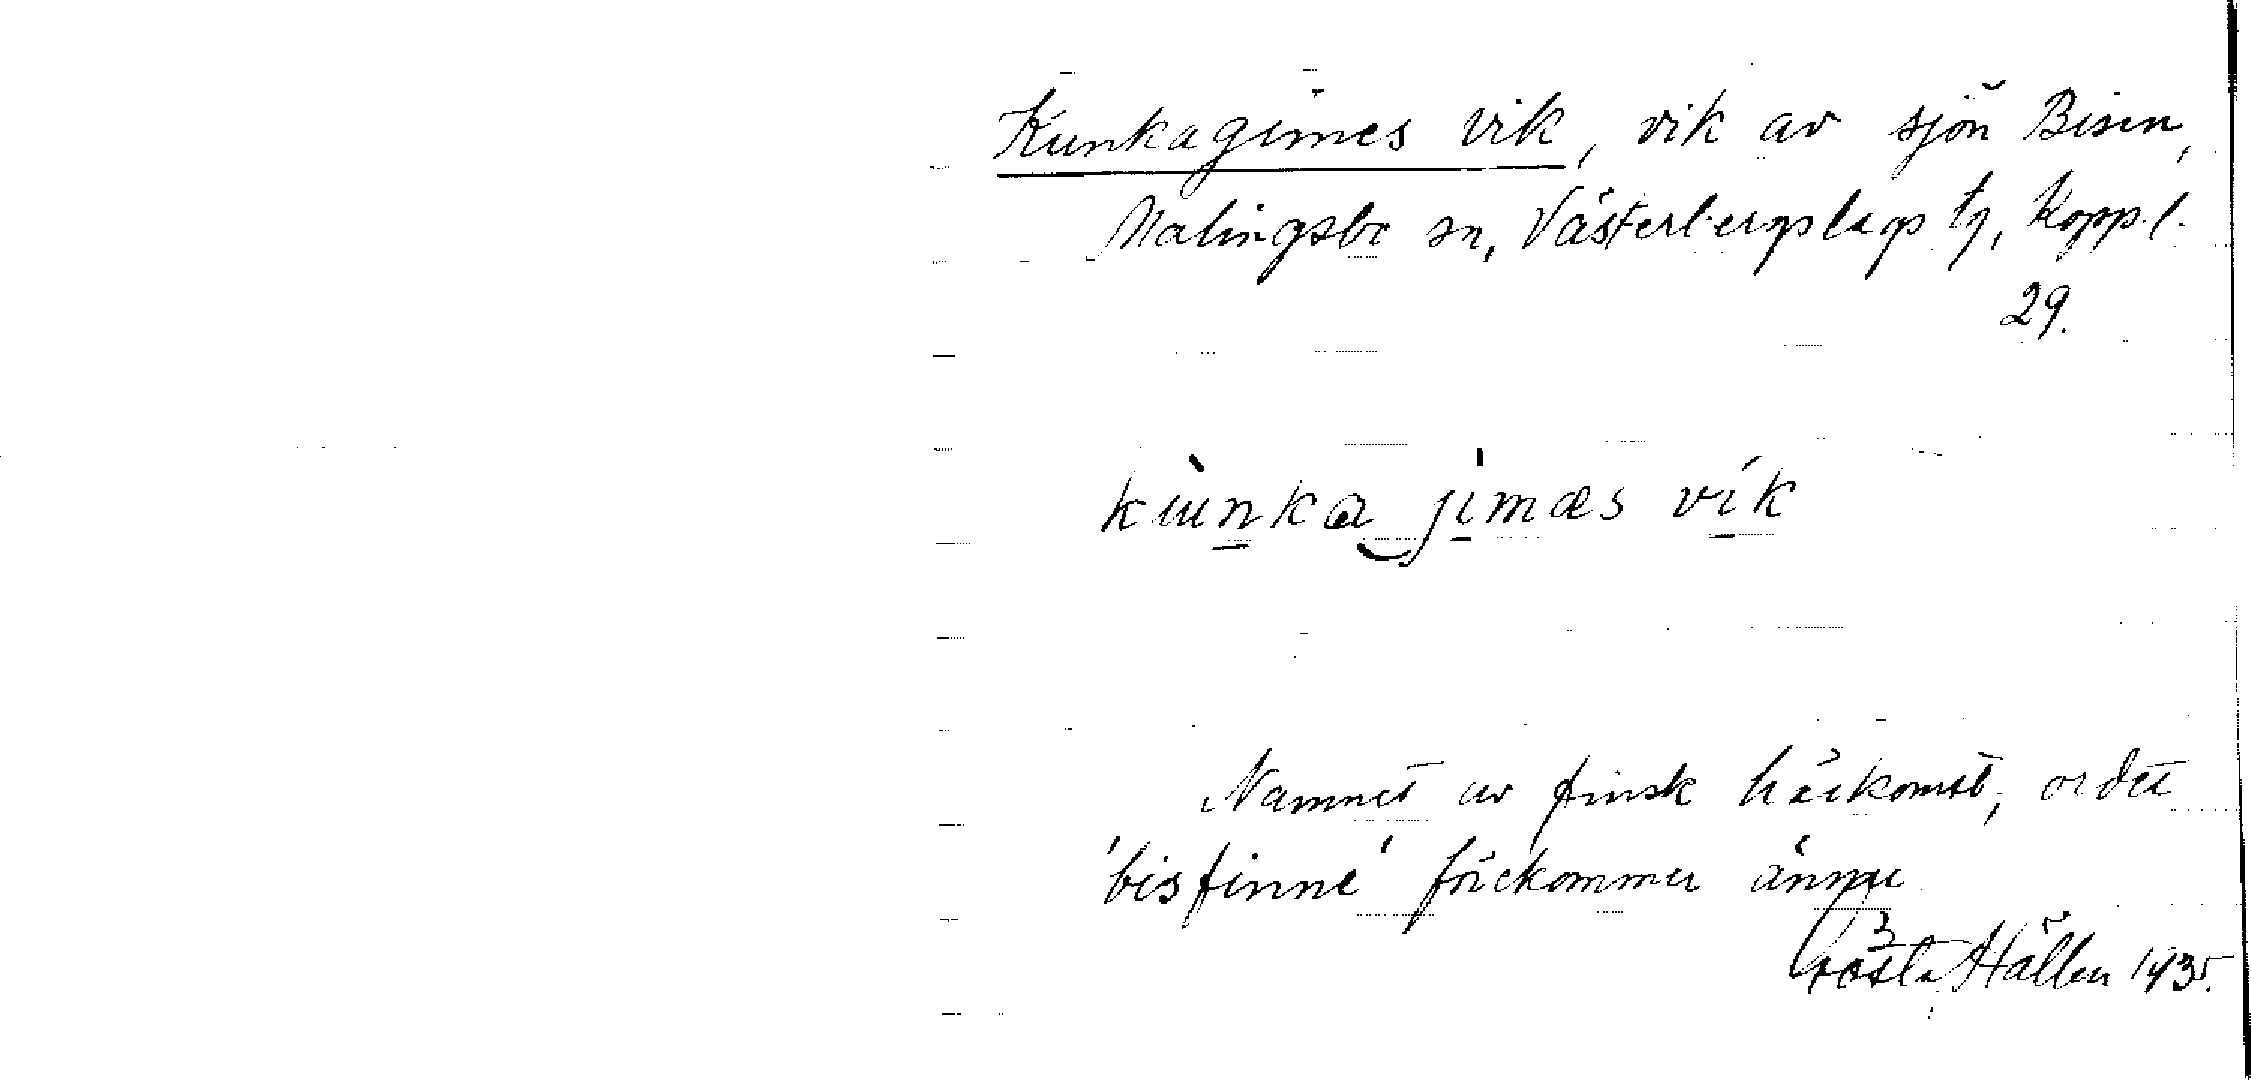 Kunkagimes vik, vik av sjön Bisen,
Malingsbo sn, Västerbergslags tg, Kopp.l.
29.
kunka jimæs vik
Namnet av finsk härkomst, ordet
'bisfinne' förekommer ännu
Gösta Hållén 1935.